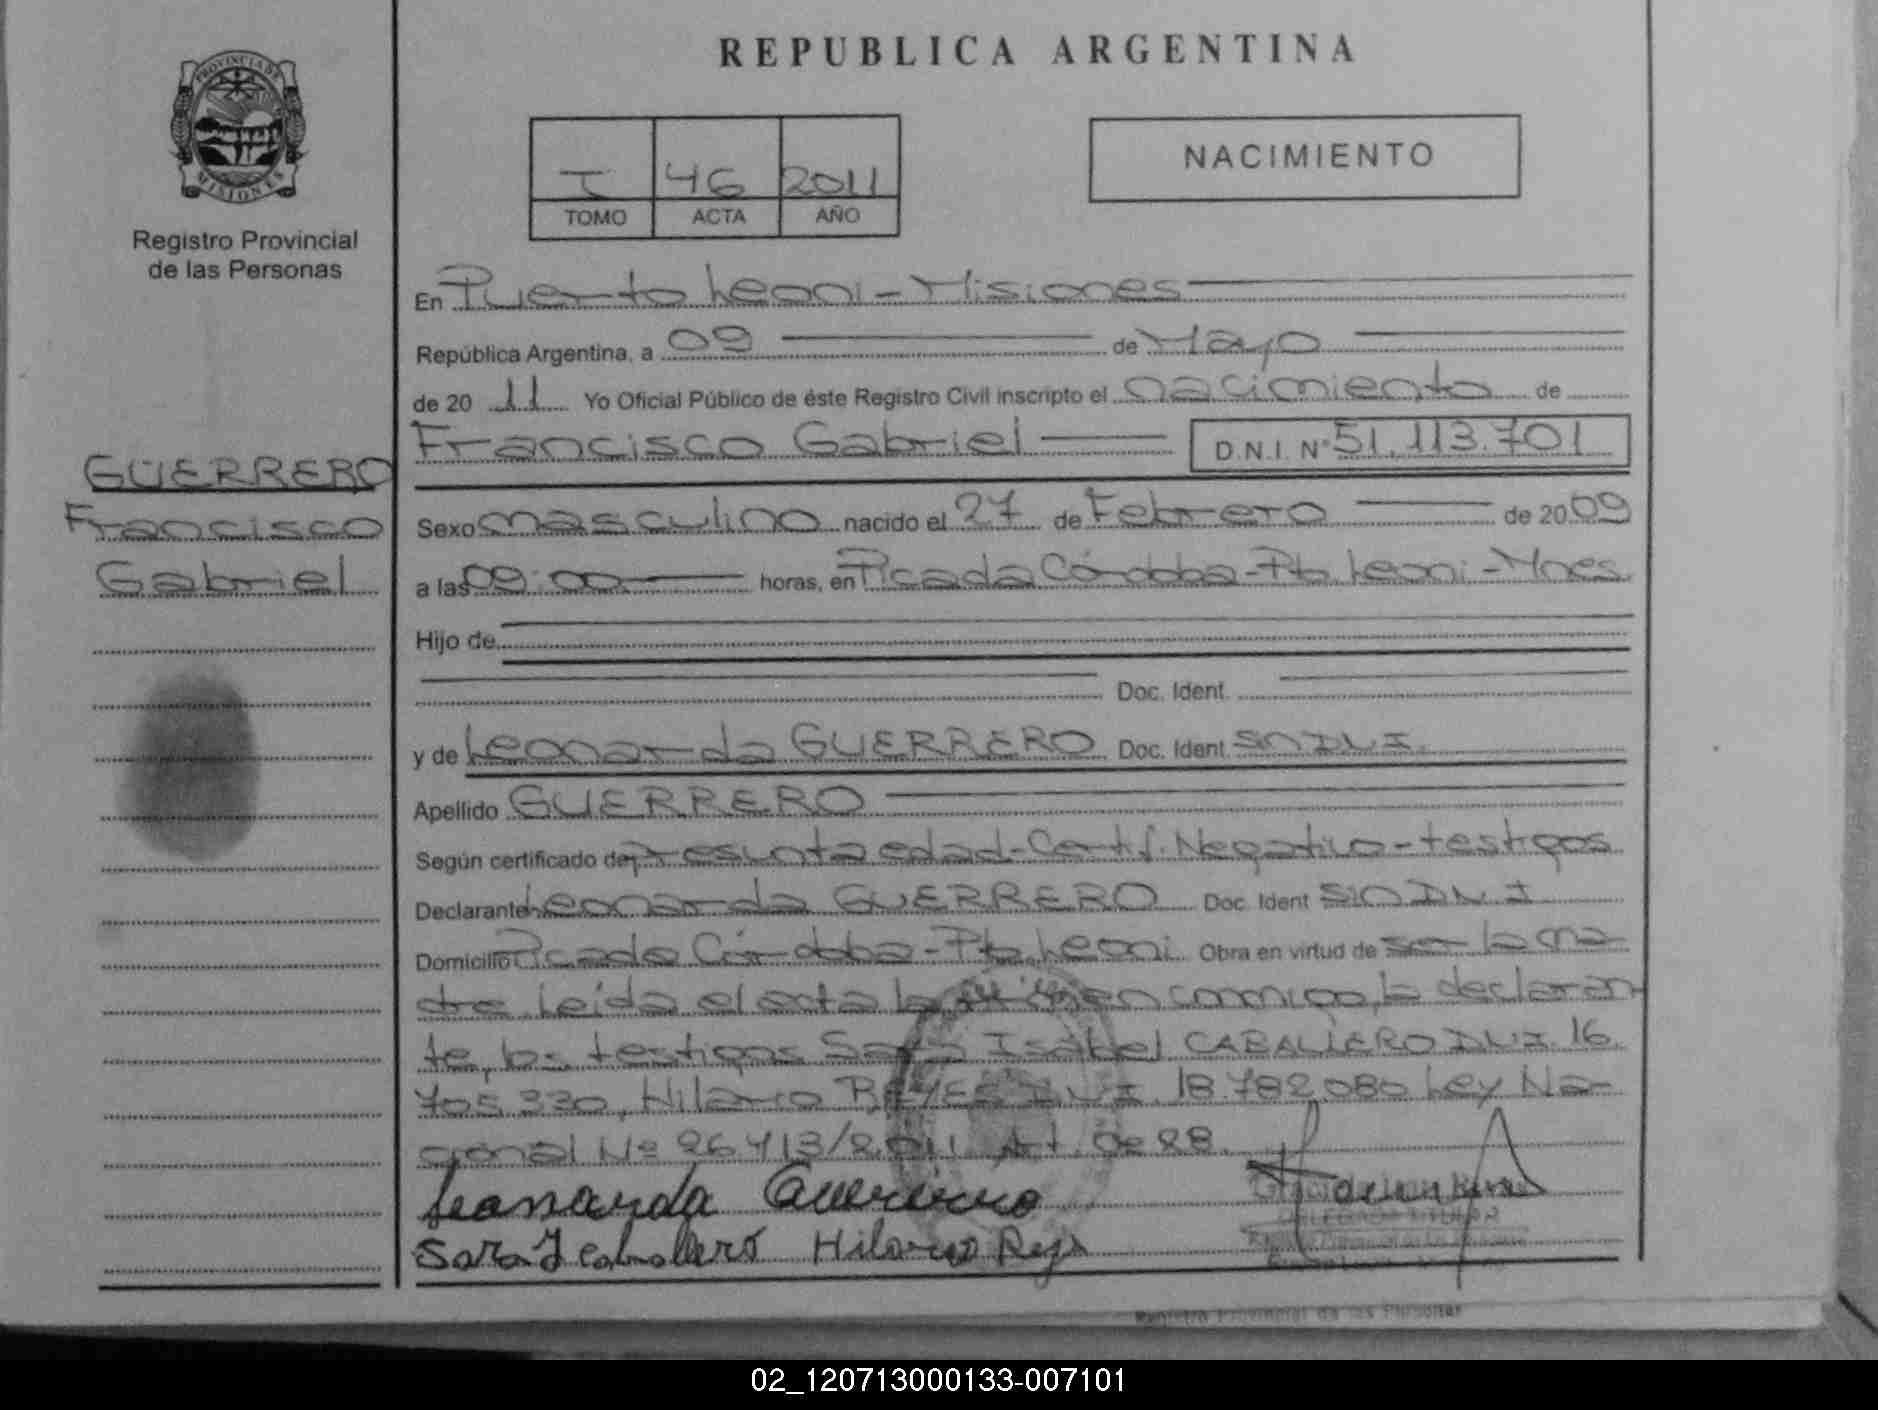 PROVINCIA DE
MISIONES
Registro Provincial
de las Personas
GUERRERO
Francisco
Gabriel
REPUBLICA ARGENTINA
I 46 2011
TOMO ACTA AÑO
NACIMIENTO
En Puerto Leoni - Misiones
República Argentina, a 09 de Mayo
de 20 11 Yo Oficial Público de éste Registro Civil inscripto el nacimiento de
Francisco Gabriel D.N.I. N° 51.113.701
Sexo masculino nacido el 27 de Febrero de 20 09
a las 09:00 horas, en Picada Córdoba - Pto. Leoni - Mnes.
Hijo de
Doc. Ident.
y de Leonarda GUERRERO Doc. Ident. Sin D.N.I.
Apellido GUERRERO
Según certificado de Presunta edad - Certif. Negativo - testigos
Declarante Leonarda GUERRERO Doc. Ident Sin D.N.I
Domicilio Picada Córdoba - Pto. Leoni. Obra en virtud de ser la ma-
dre. Leída el acta la firman conmigo, la declaran-
te, los testigos Sara Isabel CABALLERO D.N.I. 16.
705.330, Hilario REYES D.N.I. 18.782.080 Ley Na-
cional Nº 26.413/2.011. Art. de 28.
Leonarda Guerrero
Sara I Caballero Hilario Reye
DELEGADA TITULAR
Registro Provincial de las Personas
02_120713000133-007101